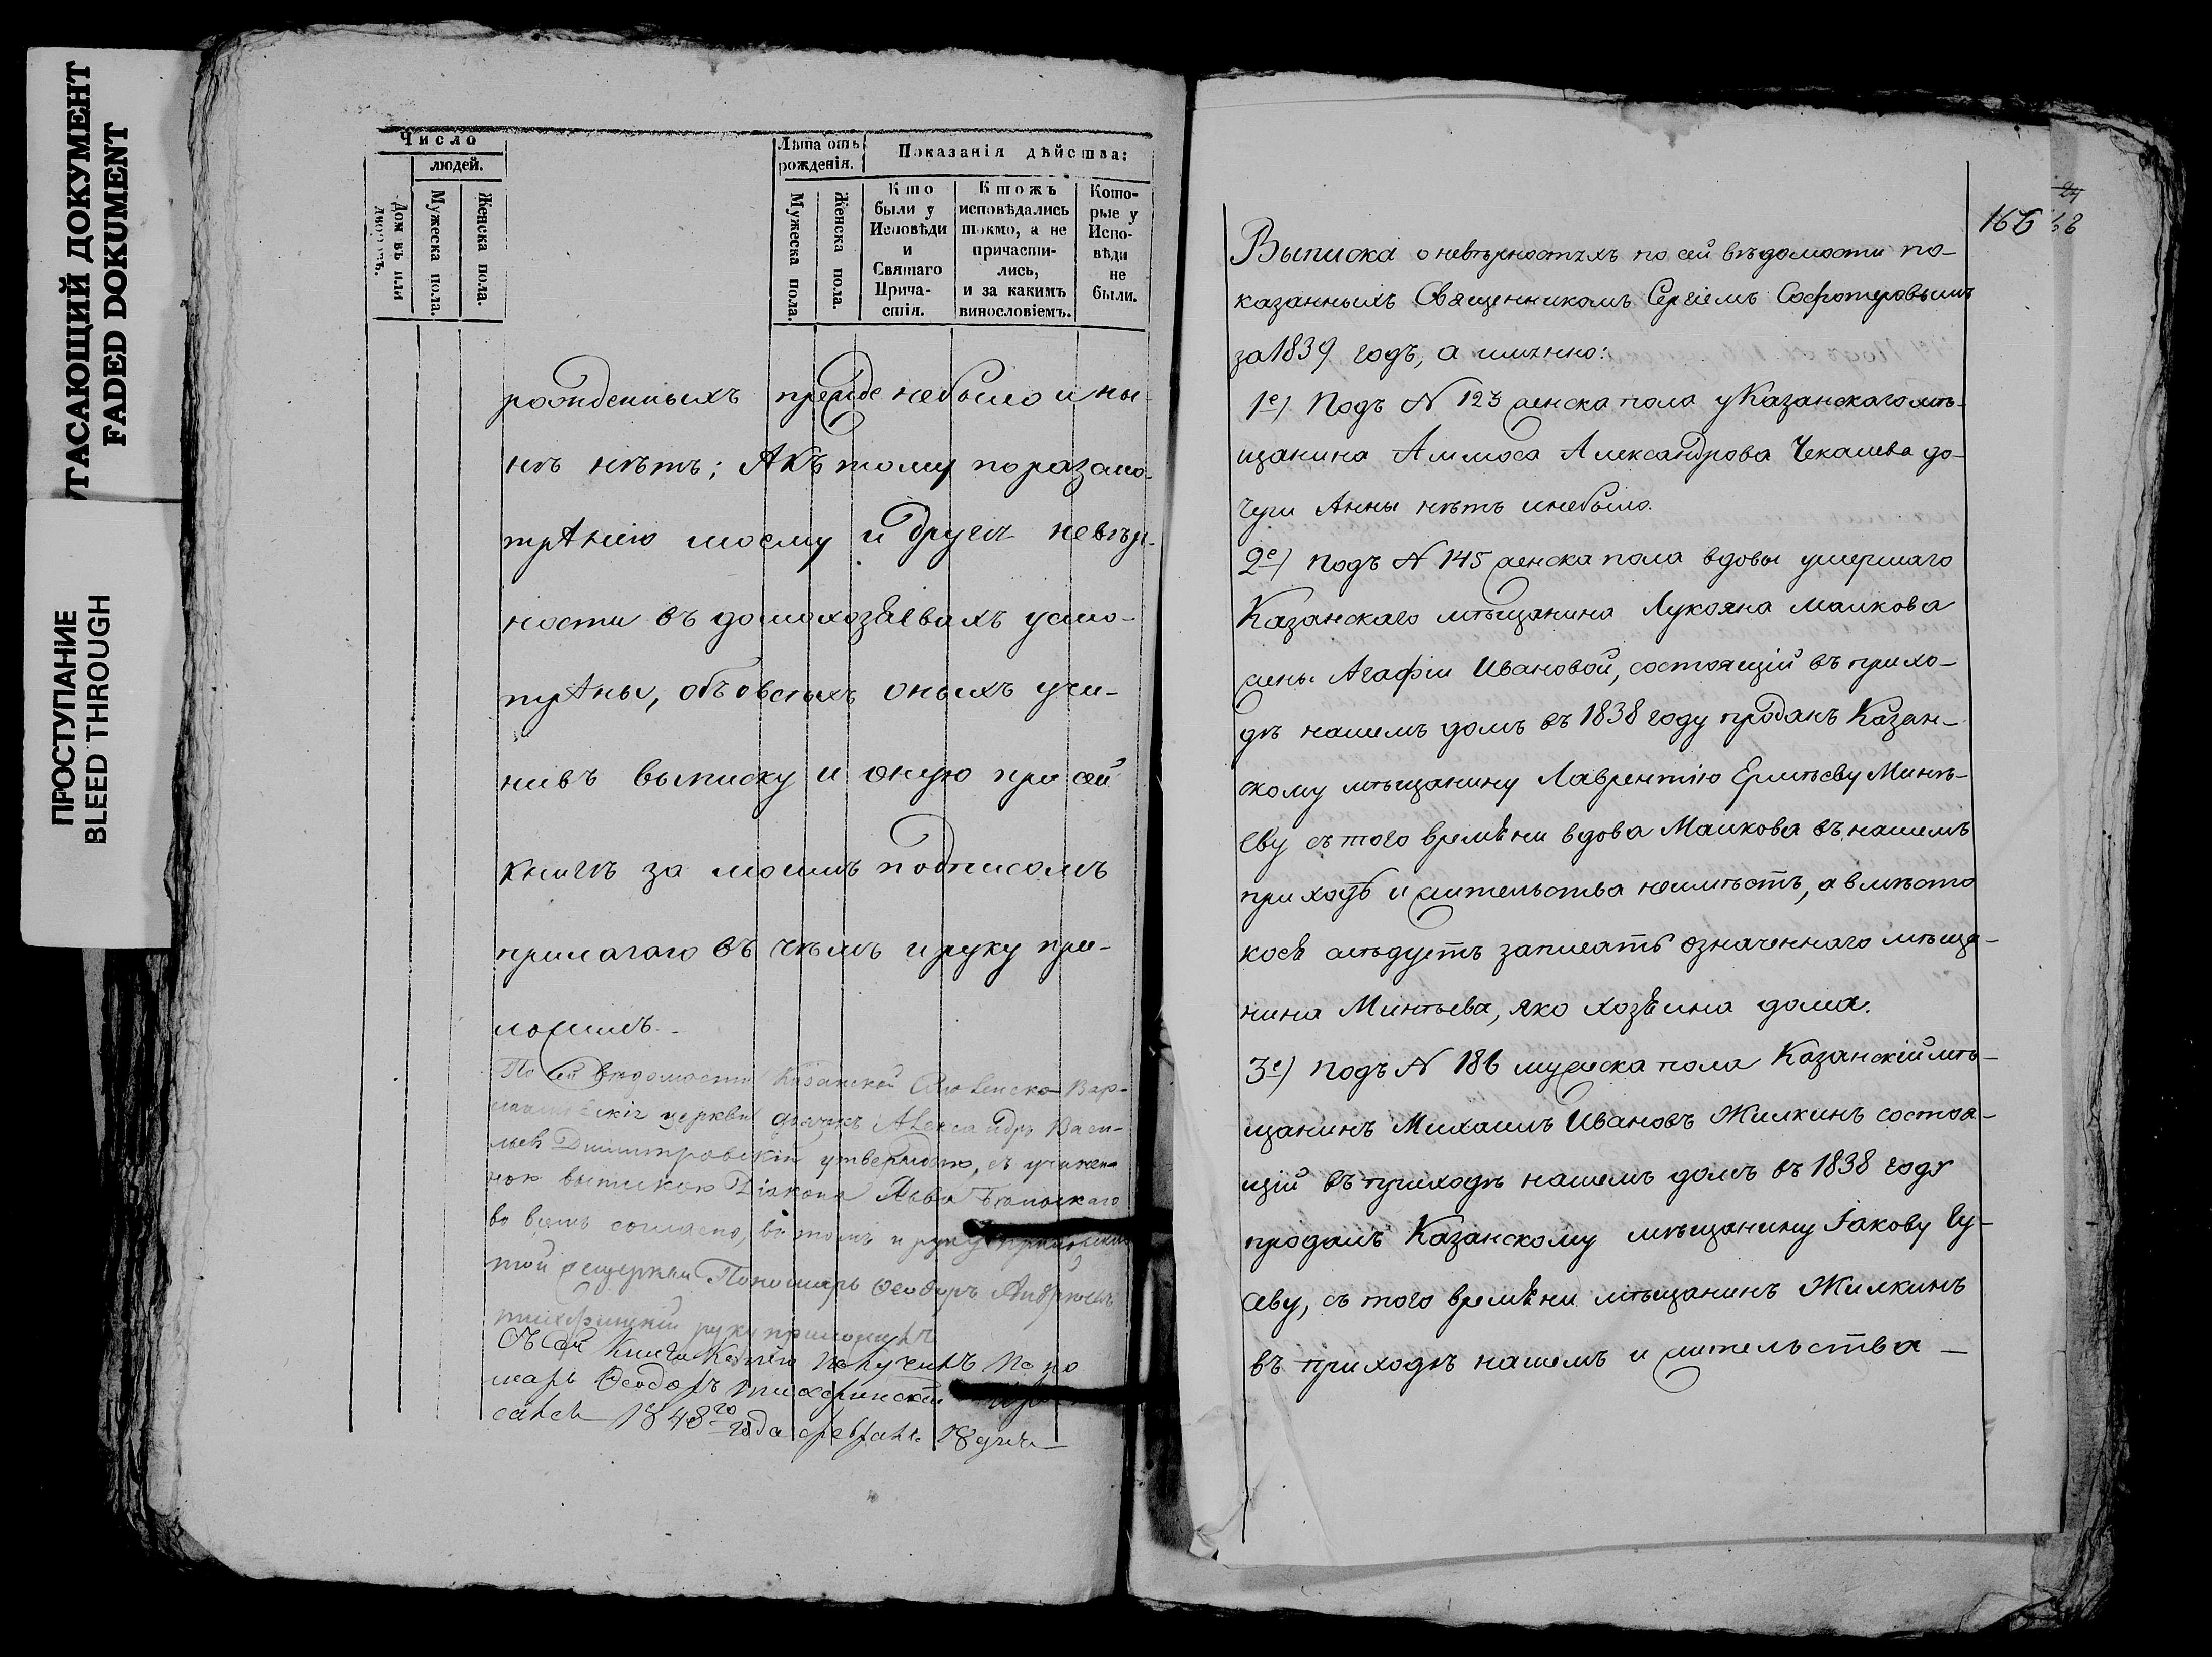 УГАСАЮЩИЙ ДОКУМЕНТ
FADED DOKUMENT
ПРОСТУПАНИЕ
BLEED THROUGH
Число
людей.
Дом въ или
Мужеска пола.
Женска пола.
Лѣта отъ рожденія.
Мужеска пола.
Женска пола.
Показанія дѣйства:
Кто были у Исповѣди и Святаго Причастія.
Ктожъ исповѣдались токмо, а не причастились, и за какимъ винословіемъ.
Которые у Исповѣди не были.
рожденныхъ прежде небыло и ны-
нѣ нѣтъ; Акъ тому по разсмо-
трѣнію моему и другія невѣр-
ности въ домохозяевахъ усмо-
трѣны, объ всѣхъ оныхъ учи-
нивъ выписку и оную при сей
книгѣ за моимъ подписомъ
прилагаю въ чѣмъ и руку при-
ложилъ.
По сей вѣдомости Казанской Вар-
церкви дьячкъ Александръ Васи-
льевъ Димитровскій утверждаю, съ учинен-
ною выпискою Діакона Льва
во всемъ согласно, въ томъ и руку приложилъ
той же церкви Пономарь Ѳеодоръ Андреевъ
руку приложилъ
Съ сей Книги Копію получилъ Поно
марь Ѳеодоръ
1848го года февраля 18 дня
24
166 68
Выписка о невѣрностяхъ по сей вѣдомости по-
казанныхъ Священникомъ Сергіемъ Софотеровымъ
за 1839 годъ, а именно:
1е) Подъ № 123 женска пола у Казанскаго мѣ-
щанина Аммоса Александрова Чекашева до-
чери Анны нѣтъ и небыло.
2е) Подъ № 145 женска пола вдовы умершаго
Казанскаго мѣщанина Лукояна Маикова
жены Агафіи Ивановой, состоящій въ прихо-
дѣ нашемъ домъ въ 1838 году проданъ Казан-
скому мѣщанину Лаврентію Ермѣеву Минѣ-
еву съ того времѣни вдова Маикова въ нашемъ
приходѣ и жительства неимѣетъ, а вмѣсто
коей слѣдуетъ записать означеннаго мѣща-
нина Минѣева, яко хозѣина дома.
3е) Подъ № 186 мужеска пола Казанскій мѣ-
щанинъ Михаилъ Ивановъ Жилкинъ состоя-
щій въ приходѣ нашемъ домъ въ 1838 году
продалъ Казанскому мѣщанину Іакову Гу-
севу, съ того времѣни мѣщанинъ Жилкинъ
въ приходѣ нашемъ и жительства —